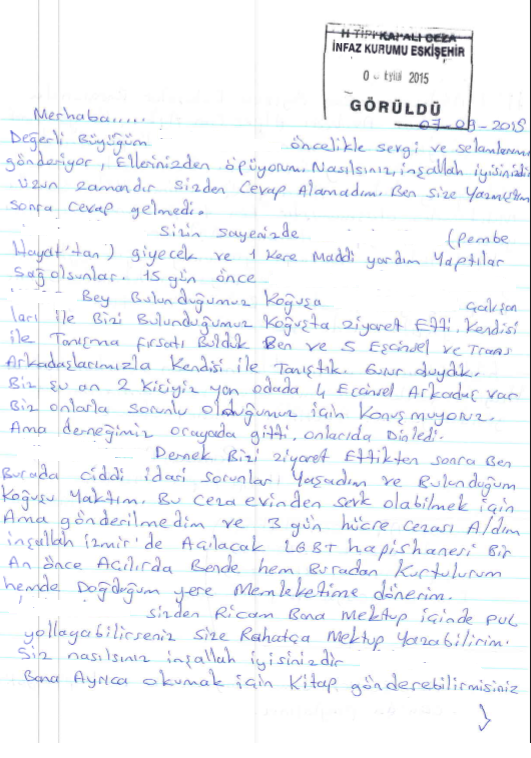 H TİPİ KAPALI CEZA
İNFAZ KURUMU ESKİŞEHİR
0 Eylül 2015
GÖRÜLDÜ
07-09-2015
Merhaba.....
Değerli Büyüğüm öncelikle sevgi ve selamlarımı
gönderiyor, Ellerinizden öpüyorum. Nasılsınız, inşallah iyisinizdir
Uzun zamandır sizden Cevap Alamadım. Ben Size Yazmıştım
sonra Cevap gelmedi.
Sizin sayenizde (Pembe
Hayat'tan) giyecek ve 1 Kere Maddi yardım Yaptılar
Sağolsunlar. 15 gün önce
Bey Bulunduğumuz Koğuşa Çalışan
ları ile Bizi Bulunduğumuz Koğuşta ziyaret Etti. Kendisi
ile Tanışma fırsatı Bulduk Ben ve 5 Eşcinsel ve Trans
Arkadaşlarımızla Kendisi ile Tanıştık. Gurur duyduk.
Biz şu an 2 Kişiyiz yan odada 4 Eşcinsel Arkadaş var
Biz onlarla sorunlu olduğumuz için Konuşmuyoruz.
Ama derneğimiz orayada gitti. onlarıda Dinledi.
Dernek Bizi ziyaret Ettikten sonra Ben
Burada ciddi idari sorunlar Yaşadım ve Bulunduğum
Koğuşu Yaktım. Bu Ceza evinden sevk olabilmek için
Ama gönderilmedim ve 3 gün hücre Cezası Aldım
inşallah izmir'de Açılacak LGBT hapishanesi Bir
An önce Açılırda Bende hem Buradan Kurtulurum
hemde Doğduğum yere Memleketime dönerim.
Sizden Ricam Bana Mektup içinde PUL
yollayabilirseniz size Rahatça Mektup Yazabilirim.
Siz nasılsınız inşallah iyisinizdir
Bana Ayrıca okumak için Kitap gönderebilirmisiniz